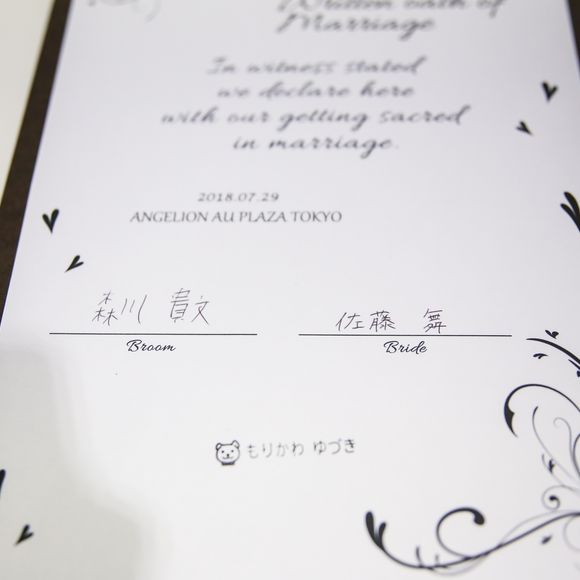 Written oath of
Marriage
In witness stated
we declare here
with our getting sacred
in marriage.
2018.07.29
ANGELION AU PLAZA TOKYO
森川 貴文
佐藤 舞
Broom
Bride
もりかわ ゆづき